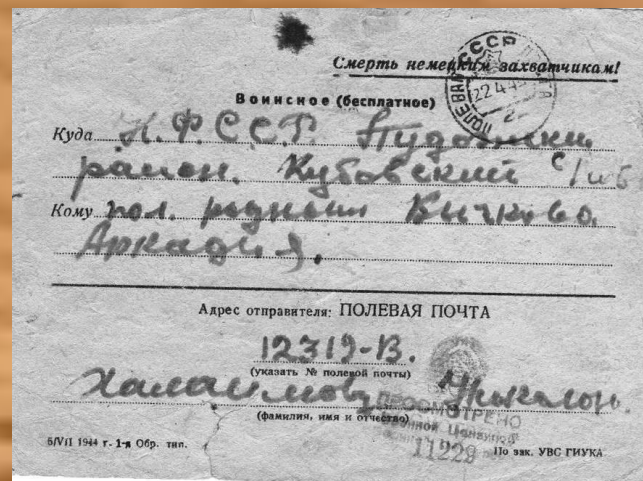 Смерть немецким захватчикам!
ПОЛЕВАЯ СССР ПОЧТА
22 4 4
2
Воинское (бесплатное)
Куда К.Ф.С.С.Р.
район. Кубовский с/
Кому пол. родным Бичкова
Аркадия.
Адрес отправителя: ПОЛЕВАЯ ПОЧТА
12719-В.
(указать № полевой почты)
(фамилия, имя и отчество)
ПРОСМОТРЕНО
Военной Цензурой
11229
5/VII 1944 г. 1-я Обр. тип.
По зак. УВС ГИУКА